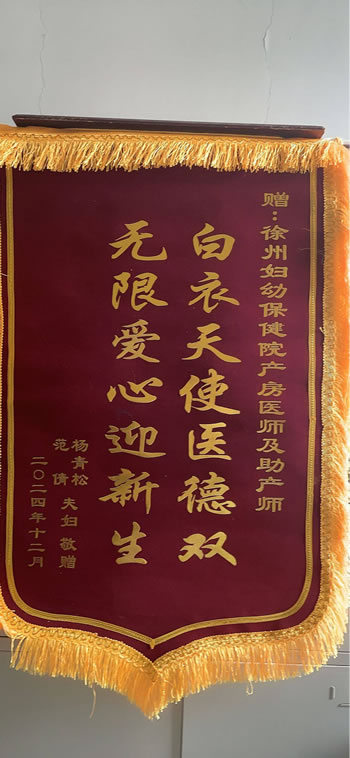 赠：徐州妇幼保健院产房医师及助产师
白衣天使医德双
无限爱心迎新生
杨青松
范倩
夫妇 敬赠
二〇二四年十二月